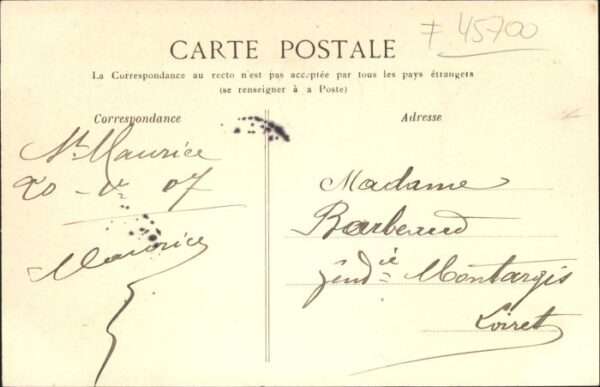 F 45700
CARTE POSTALE
La Correspondance au recto n'est pas acceptée par tous les pays étrangers
(se renseigner à a Poste)
Correspondance
Adresse
St Maurice
20 - V - 07
Maurice
Madame
Barbeaud
Gendie Montargis
Loiret